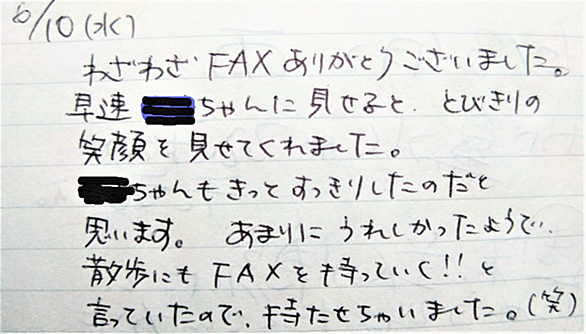 6/10(水)
わざわざ FAX ありがとうございました。
早速 ちゃんに見せると、とびきりの
笑顔を見せてくれました。
ちゃんもきっとすっきりしたのだと
思います。 あまりにうれしかったようで、
散歩にも FAXを持っていく!! と
言っていたので、持たせちゃいました。(笑)